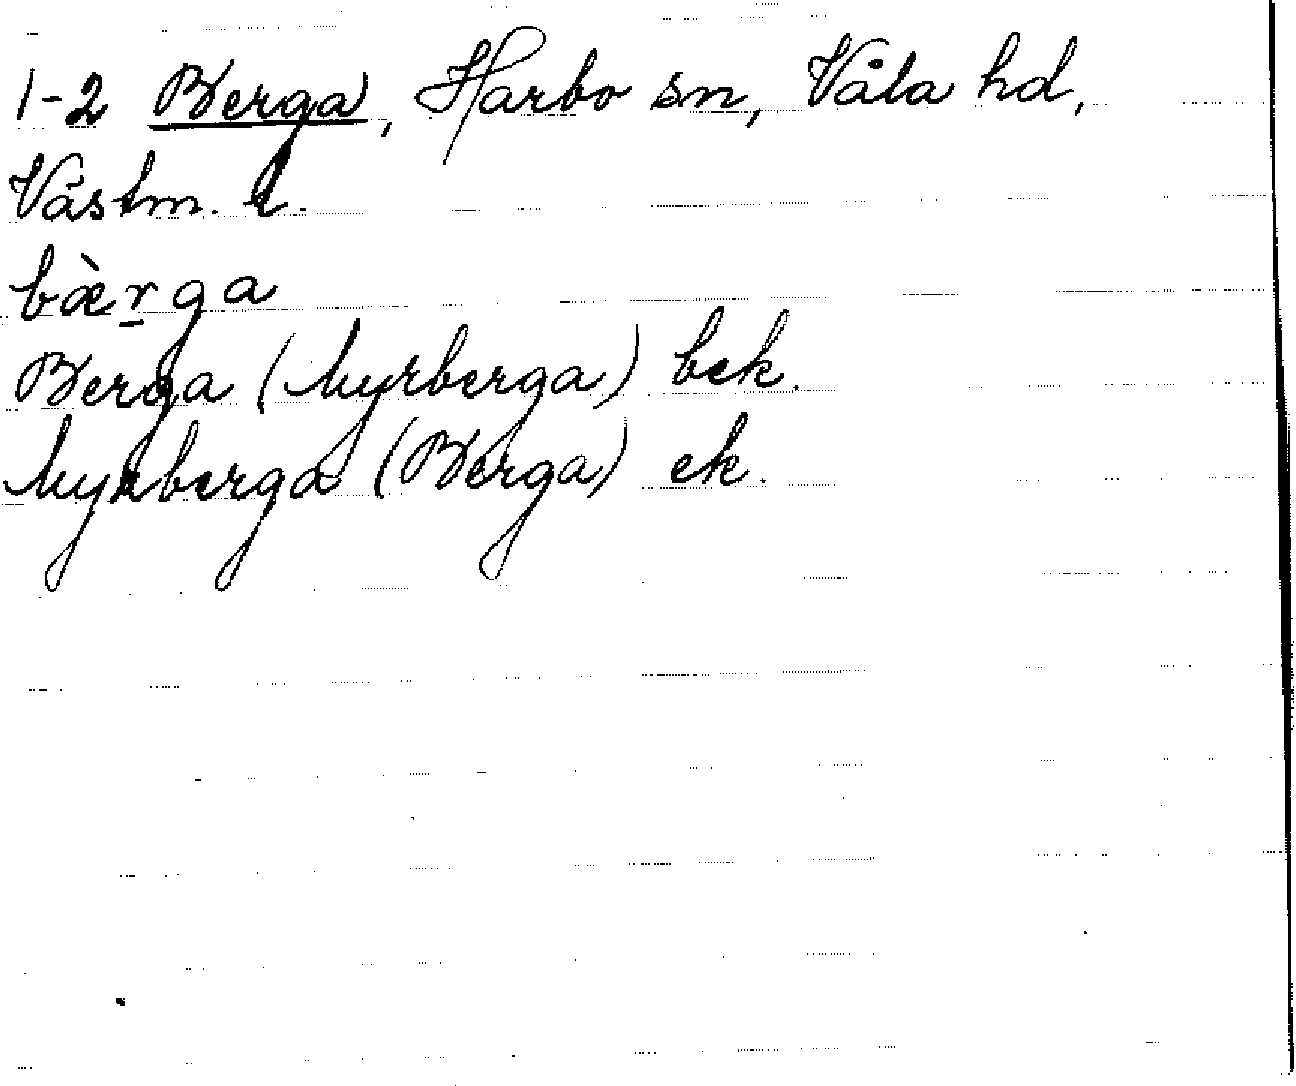 1-2 Berga, Harbo sn, Våla hd,
Västm. l.
bæ̀r̠ga
Berga (Myrberga) bek.
Myrberga (Berga) ek.